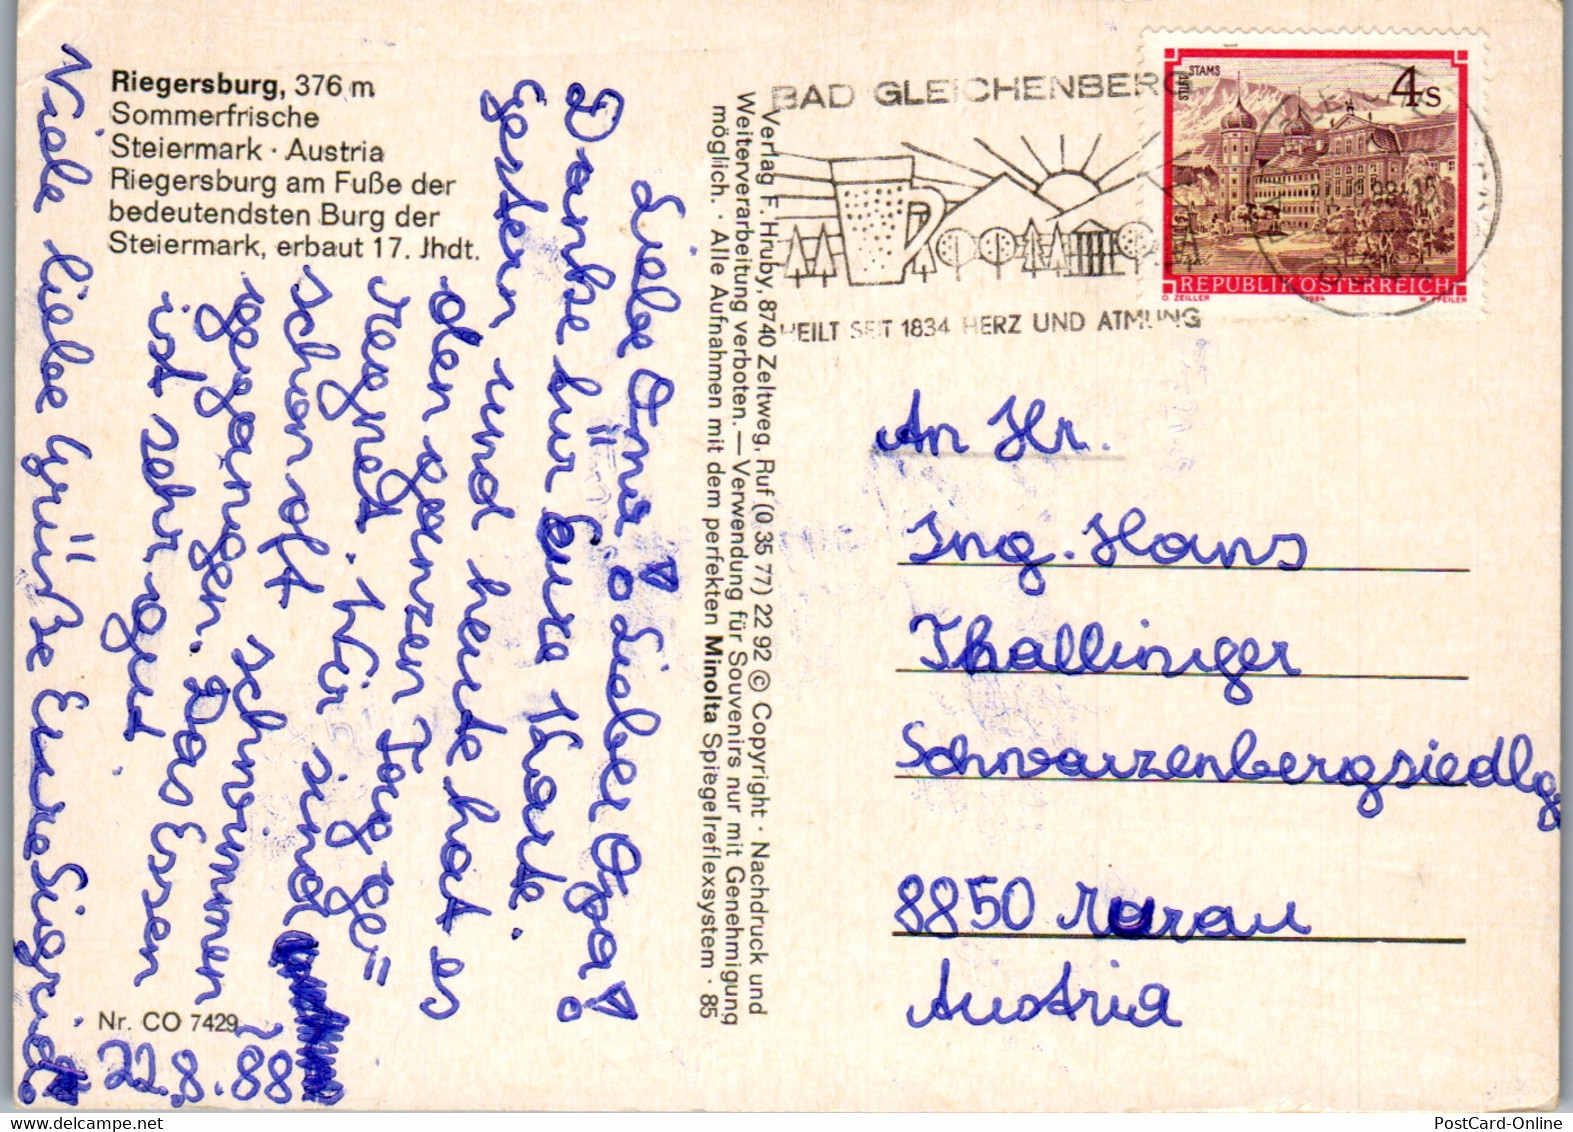 Riegersburg, 376 m
Sommerfrische
Steiermark · Austria
Riegersburg am Fuße der
bedeutendsten Burg der
Steiermark, erbaut 17. Jhdt.
Liebe Oma! Lieber Opa!
Danke für Eure Karte.
Gestern und heute hat es
den ganzen Tag ge=
regnet. Wir sind
schon oft schwimmen
gegangen. Das Essen
ist sehr gut
Viele liebe Grüße Eure Sigrid.
22.8.88
Nr. CO 7429
Verlag F. Hruby, 8740 Zeltweg, Ruf (0 35 77) 22 92 © Copyright · Nachdruck und
Weiterverarbeitung verboten. — Verwendung für Souvenirs nur mit Genehmigung
möglich. · Alle Aufnahmen mit dem perfekten Minolta Spiegelreflexsystem · 85
BAD GLEICHENBERG
HEILT SEIT 1834 HERZ UND ATMUNG
STIFT
STAMS
4 S
REPUBLIK ÖSTERREICH
O. ZEILLER 1984 W. PFEILER
An Hr.
Ing. Hans
Thallinger
Schwarzenbergsiedlg
8850 Murau
Austria
PostCard-Online